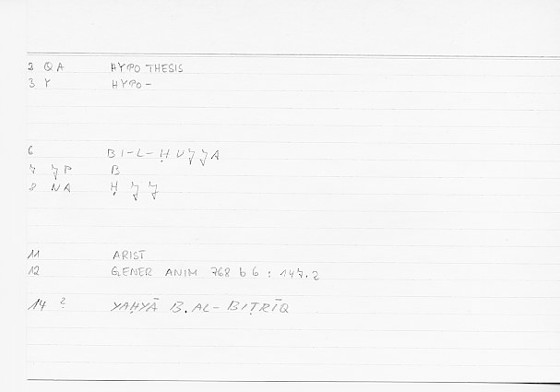 2 QA HYPO THESIS
3 Y HYPO-
6 BI-L-ḤUJJA
7 JP B
8 NA Ḥ J J
11 ARIST
12 GENER ANIM 768 b 6 : 147.2
14 2 YAḤYĀ B. AL-BIṬRĪQ